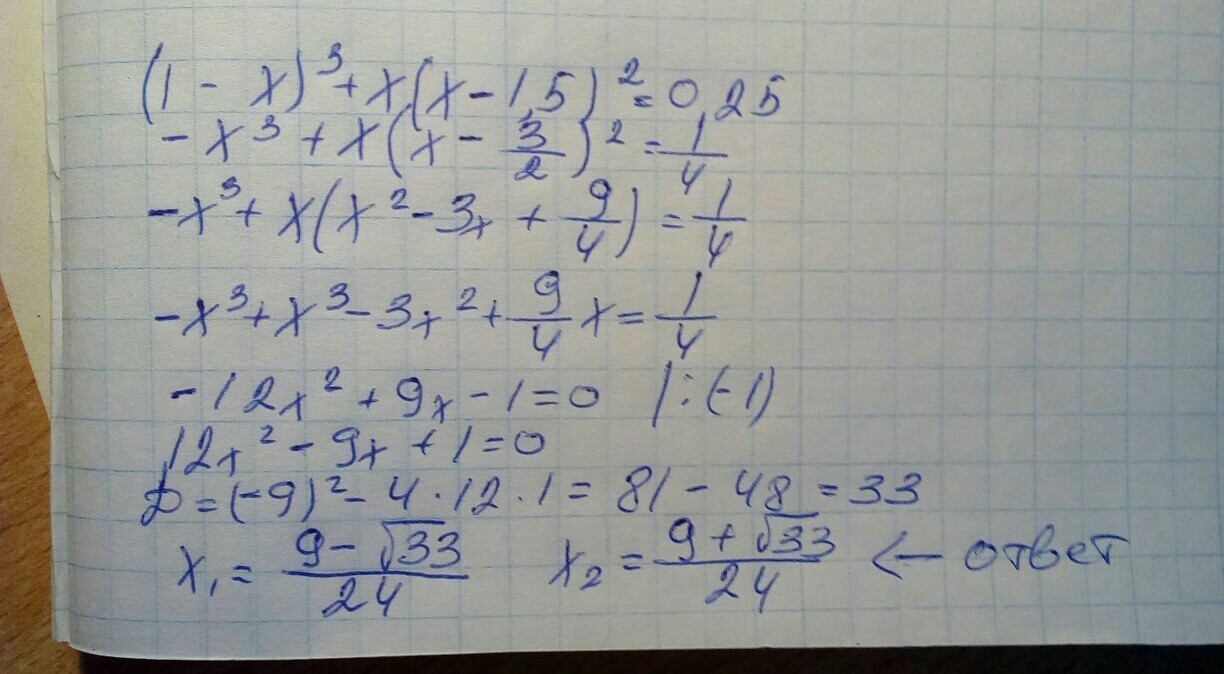 (1 - x)³ + x(x - 1,5)² = 0,25
- x³ + x(x - 3/2)² = 1/4
-x³ + x(x² - 3x + 9/4) = 1/4
-x³ + x³ - 3x² + 9/4 x = 1/4
-12x² + 9x - 1 = 0 | : (-1)
12x² - 9x + 1 = 0
D = (-9)² - 4 · 12 · 1 = 81 - 48 = 33
x₁ = (9 - √33)/24 x₂ = (9 + √33)/24 ← ответ